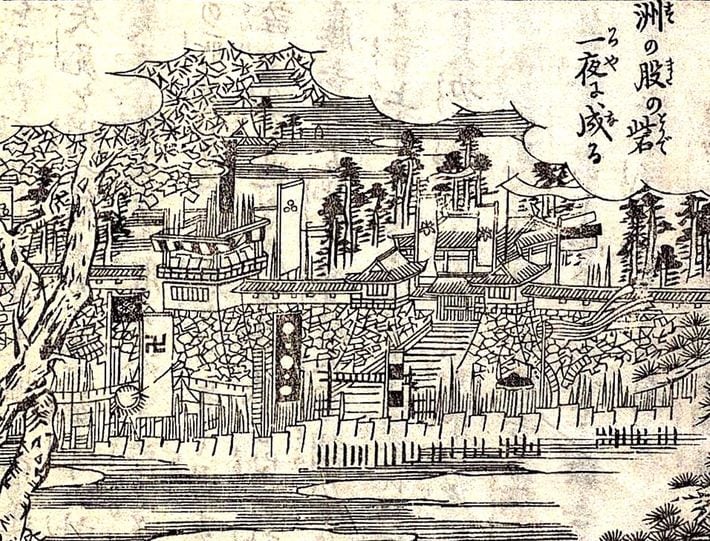 洲の股の砦
一夜に成る